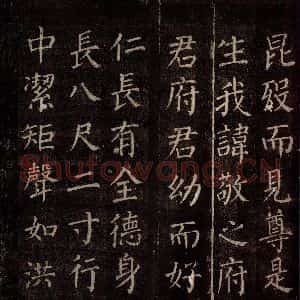 昆毀而見尊是
生我諱敬之府
君府君幼而好
仁長有全德身
長八尺二寸行
中潔矩聲如洪
Shufawang.CN